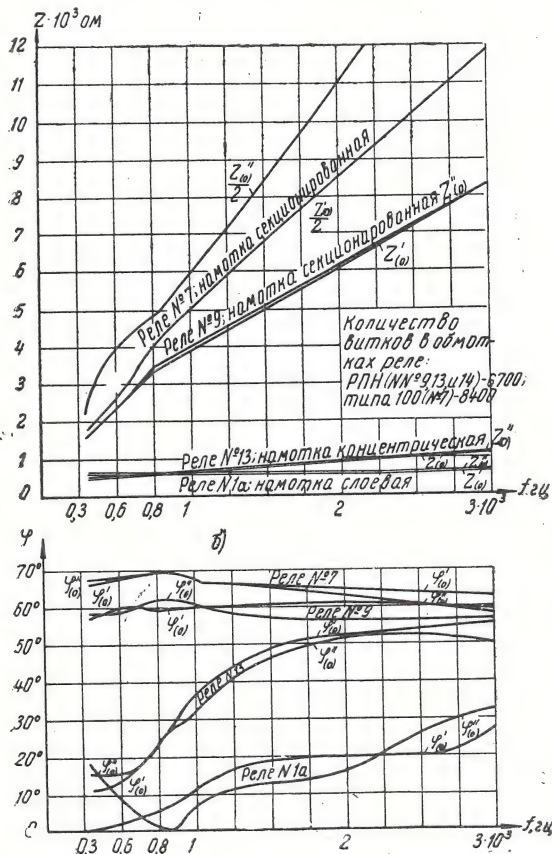 Z·10³ ом
12
11
10
9
8
7
6
5
4
3
2
1
0
Z"(0)
2
Реле №7; намотка секционированная
Z'(0)
2
Реле №9; намотка секционированная Z"(0)
Z'(0)
Количество
витков в обмот-
ках реле:
РПН (№№9,13,и14)-6700;
типа 100(№7)-8400
Реле №13; намотка концентрическая Z"(0)
Z'(0), Z"(0)
Реле N1а; намотка слоевая Z'(0)
0,3 0,6 0,8 1 2 3·10³ f,гц
φ
б)
70°
60°
50°
40°
30°
20°
10°
0
φ"(0)
φ'(0)
φ"(0)
φ'(0)
Реле №7
φ'(0)
φ"(0)
Реле №9
φ'(0)
φ"(0)
Реле N13
φ"(0)
φ'(0)
Реле N1а
φ'(0)
φ"(0)
0,3 0,6 0,8 1 2 3·10³ f,гц